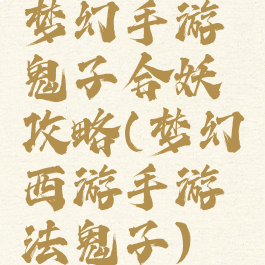 梦幻手游
鬼子合妖
攻略(梦幻
西游手游
法鬼子)